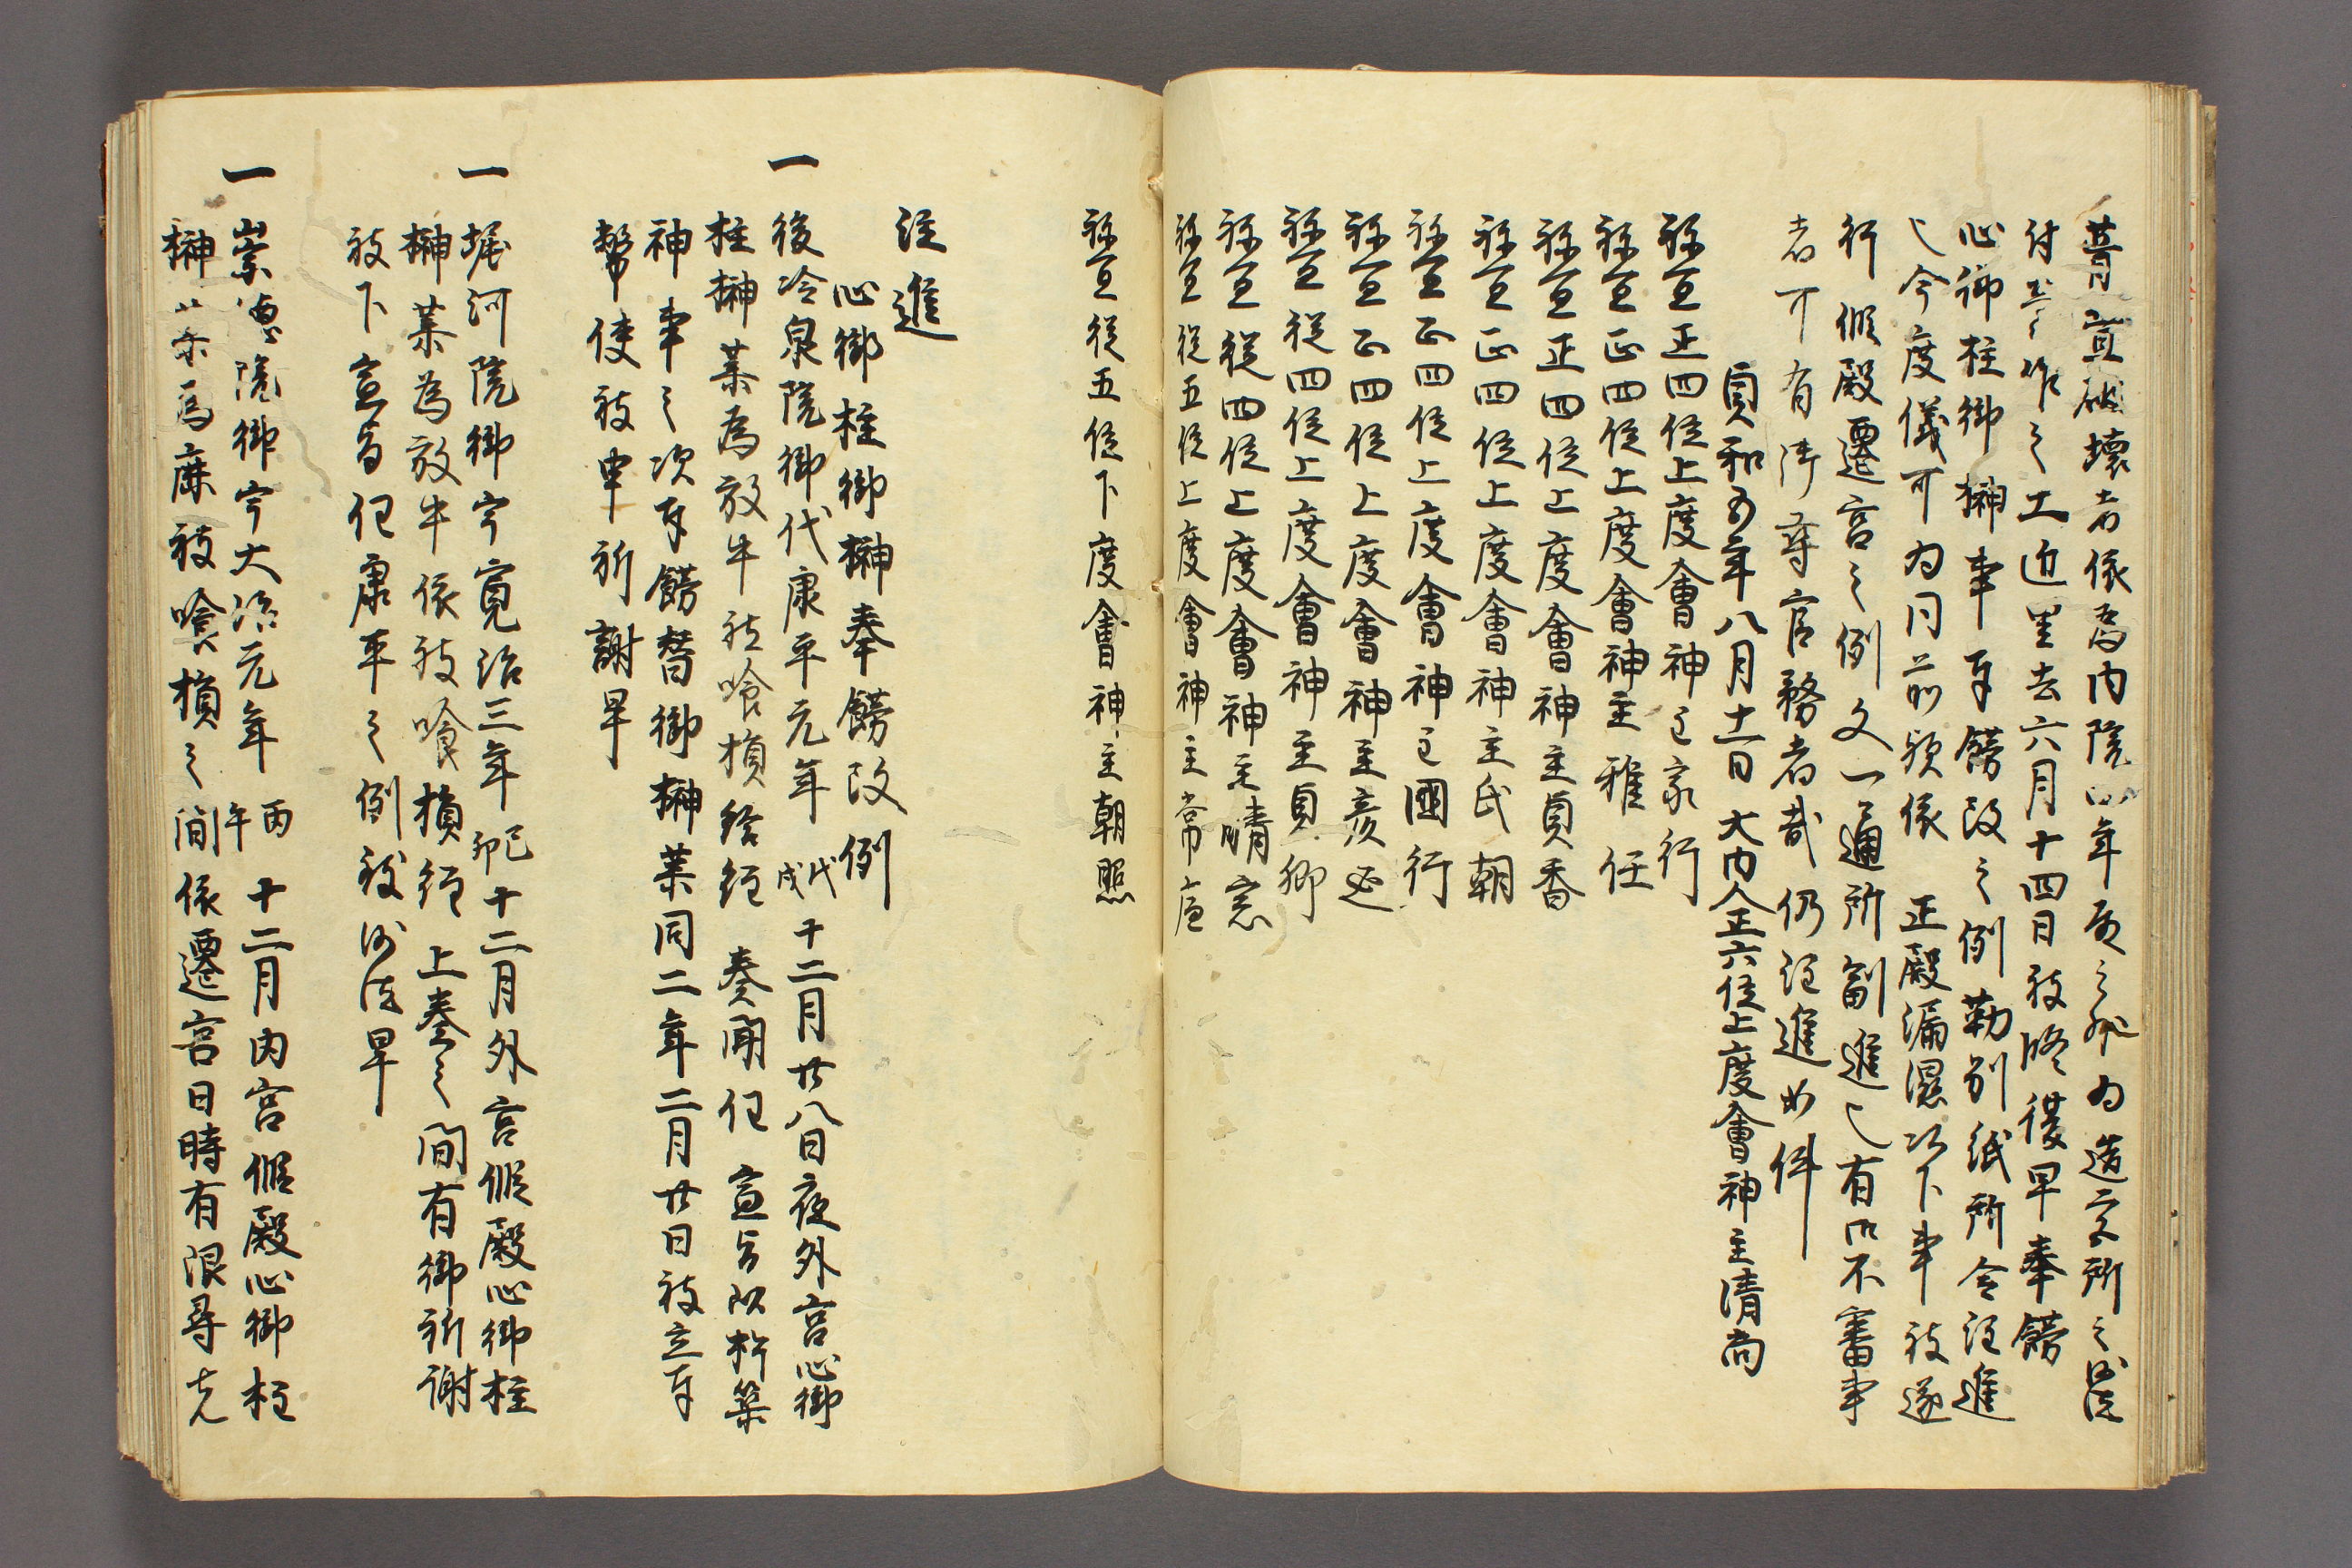 葺萱破壊者依為内院四年頁之躰為造宮所之沙汰
付葺作之工近里去六月十四日被終後早奉餝
心御柱御榊事奉餝改之例勒別紙所令注進
也今度儀可為同前欤依 正殿漏濕以下事被遂
行假殿遷宮之例文一通所副進也有御不審事
者可有御尋官務者哉仍注進如件
貞和五年八月十一日 大内人正六位上度會神主清尚
祢宜正四位上度會神主家行
祢宜正四位上度會神主雅任
祢宜正四位上度會神主貞香
祢宜正四位上度會神主氏朝
祢宜正四位上度會神主國行
祢宜正四位上度會神主彦延
祢宜従四位上度會神主貞卿
祢宜従四位上度會神主晴宗
祢宜従五位上度會神主常庭
祢宜従五位下度會神主朝照
注進
心御柱御榊奉餝改例
一 後冷泉院御代康平元年戊戌十二月廿八日夜外宮心御
柱榊葉為放牛被喰損給経 奏聞任 宣旨以杵築
神事之次奉餝替御榊葉同二年二月廿日被立奉
幣使被申祈謝畢
一 堀河院御宇寛治三年己卯十二月外宮假殿心御柱
榊葉為放牛依被喰損経 上奏之間有御祈謝
被下宣旨任康平之例被沙汰畢
一 崇德院御宇大治元年丙午 十二月内宮假殿心御柱
榊葉為麻被喰損之間依遷宮日時有限尋先